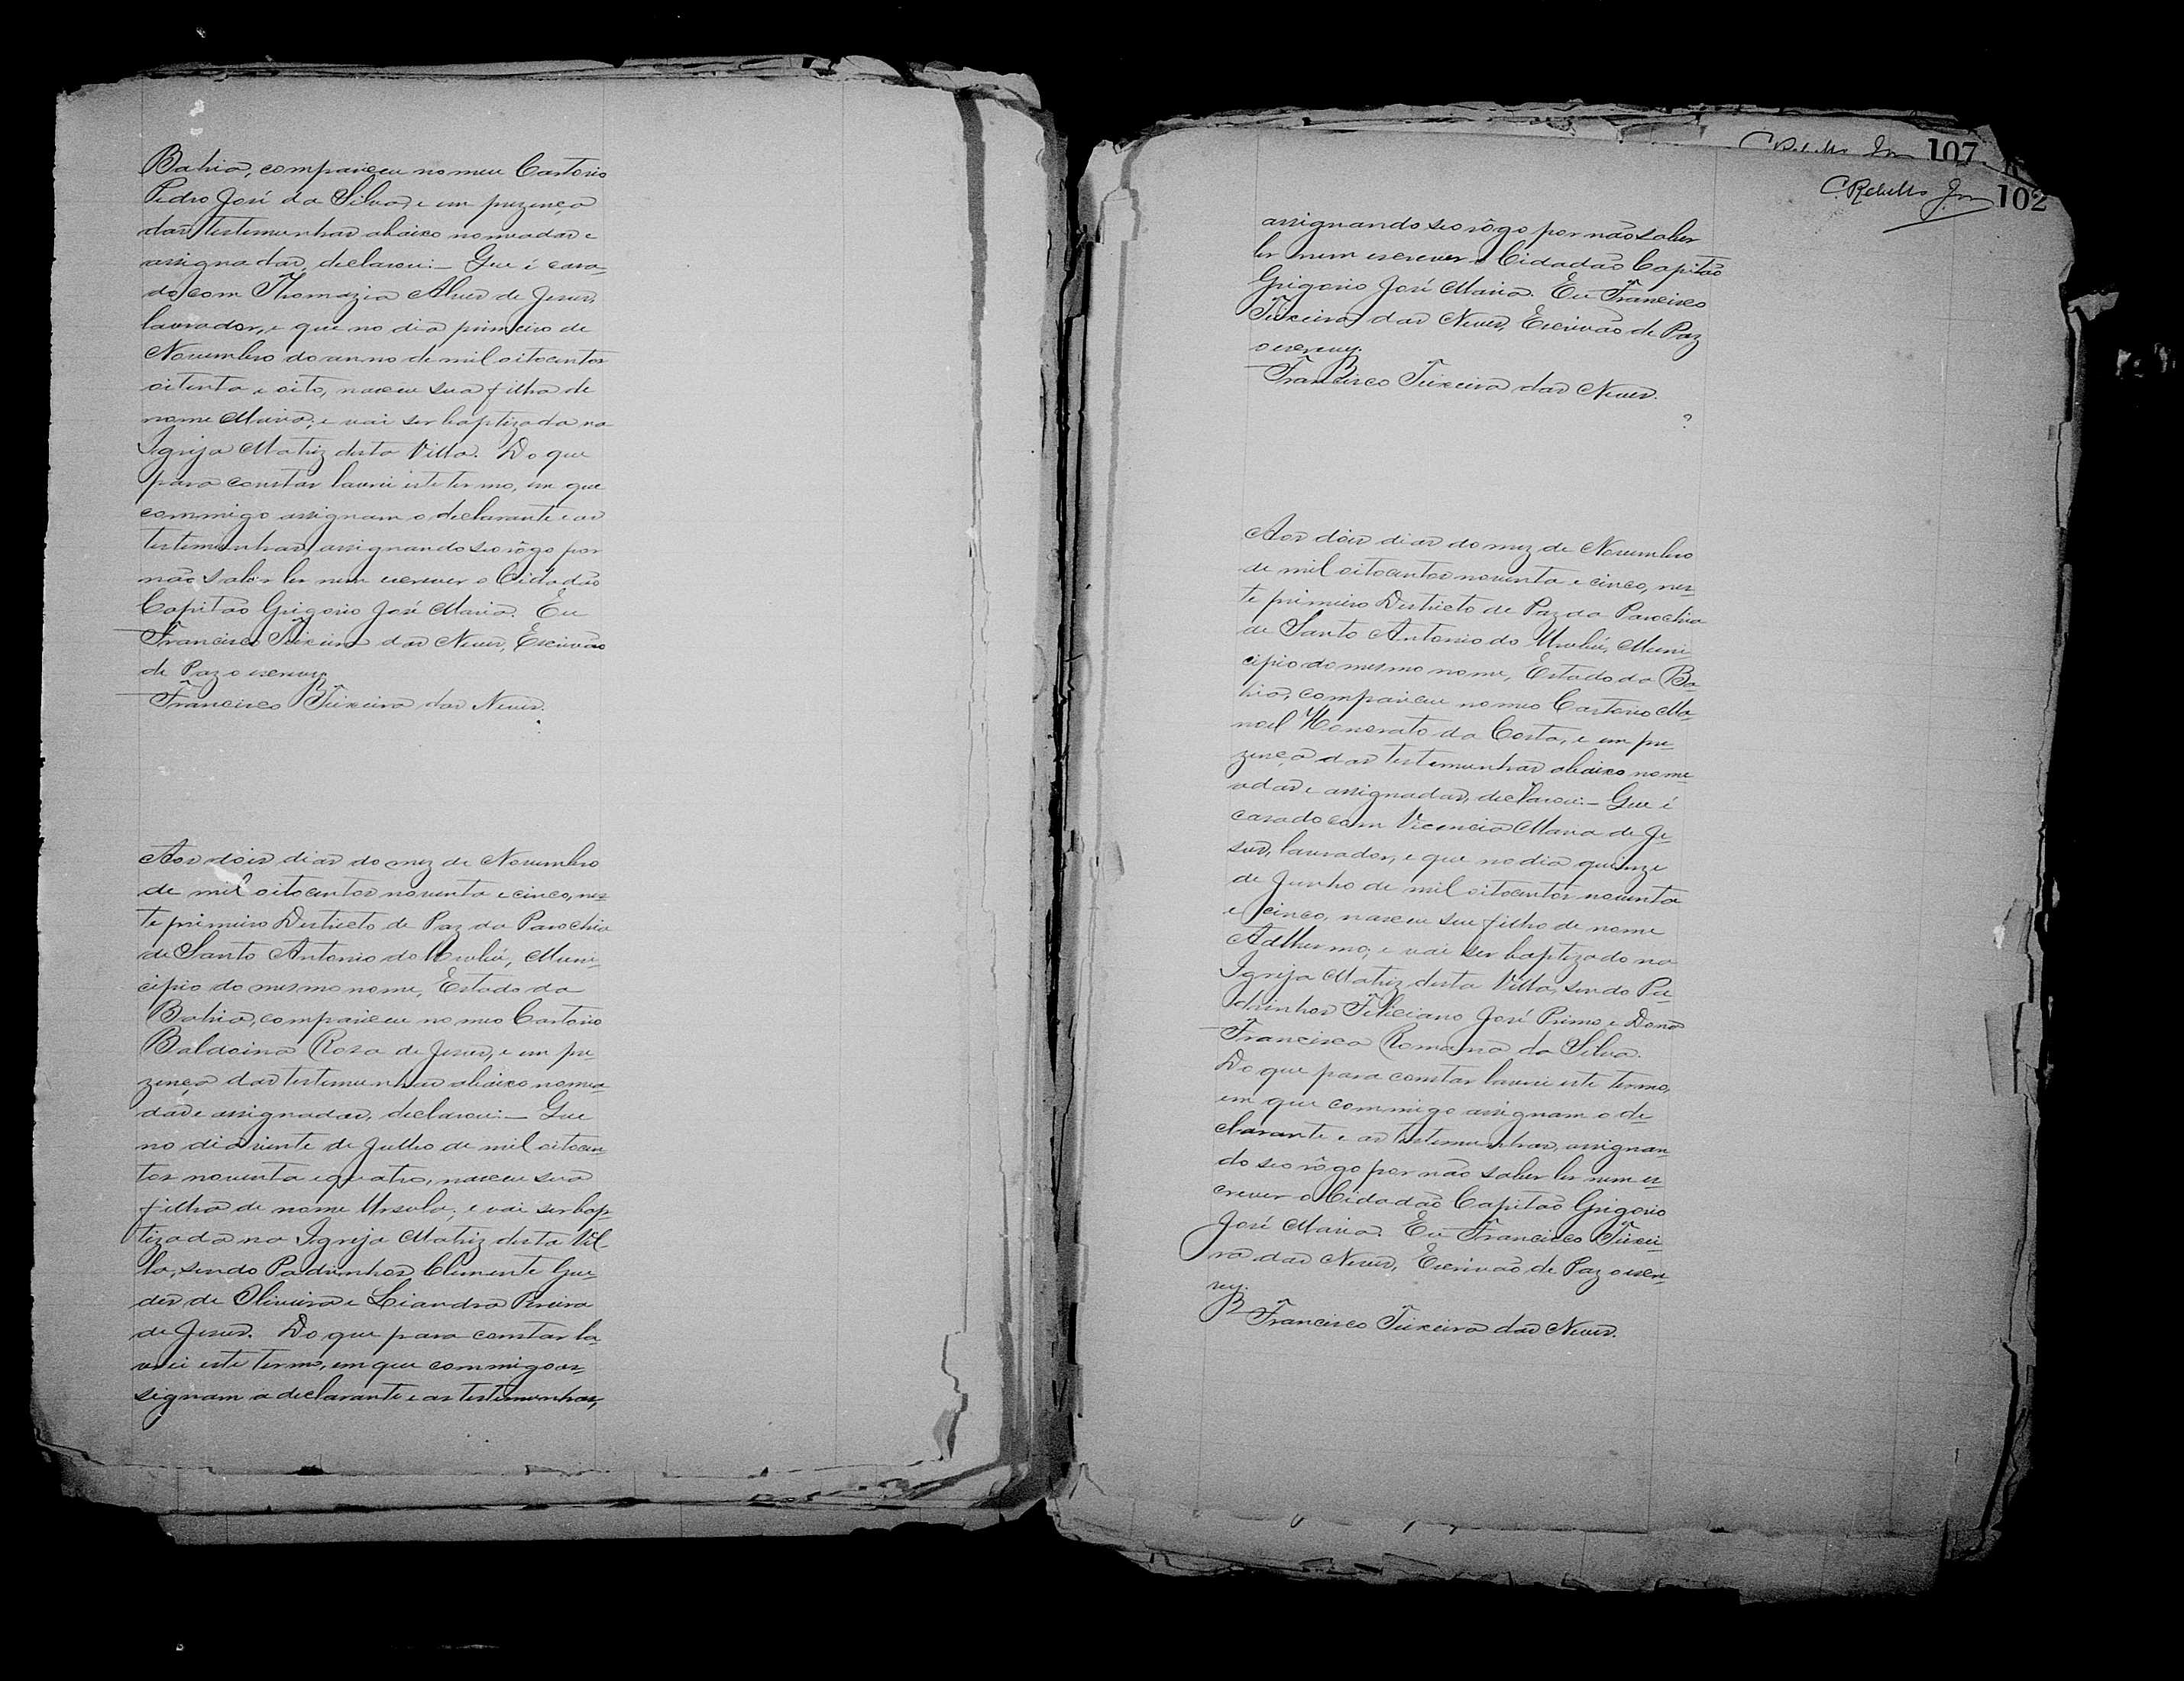 Bahia, compareceu no meu Cartorio
Pedro José da Silva, e em prezença
das testemunhas abaixo nomeadas e
assignadas, declarou:— Que é casa-
do com Thomazia Alves de Jesus,
lavrador, e que no dia primeiro de
Novembro do anno de mil oitocentos
oitenta e oito, nasceu sua filha de
nome Maria; e vai ser baptizada na
Igreja Matriz desta Villa. Do que
para constar lavrei este termo, em que
commigo assignam o declarante e as
testemunhas, assignando seo rôgo por
não saber ler nem escrever o Cidadão
Capitão Grigorio José Maria. Eu
Francisco Teixeira das Neves, Escrivão
de Paz o escrevy.
Francisco Teixeira das Neves.
Aos dois dias do mez de Novembro
de mil oitocentos noventa e cinco, nes-
te primeiro Destricto de Paz da Parochia
de Santo Antonio do Urubú, Muni-
cipio do mesmo nome, Estado da
Bahia, compareceu no meo Cartorio
Baldoina Rosa de Jesus, e em pre-
zença das testemunhas abaixo nomea-
das e assignadas, declarou:— Que
no dia vinte de Julho de mil oitocen-
tos noventa e quatro, nasceu sua
filha de nome Ursula; e vai ser bap-
tizada na Igreja Matriz desta Vil-
la, sendo Padrinhos Clemente Gue-
des de Oliveira e Leandra Pereira
de Jesus. Do que para constar la-
vrei este termo, em que commigo as-
signam a declarante e as testemunhas,
C. Rebello Jor 107
C. Rebello Jor 102
assignando seo rôgo por não saber
ler nem escrever o Cidadão Capitão
Grigorio José Maria. Eu Francisco
Teixeira das Neves, Escrivão de Paz
o escrevy.
Francisco Teixeira das Neves.
Aos dois dias do mez de Novembro
de mil oitocentos noventa e cinco, nes-
te primeiro Destricto de Paz da Parochia
de Santo Antonio do Urubú, Muni-
cipio do mesmo nome, Estado da Ba-
hia, compareceu no meo Cartorio Ma-
noel Honorato da Costa, e em pre-
zença das testemunhas abaixo nome-
adas e assignadas, declarou:— Que é
casado com Vicencia Maria de Je-
sus, lavrador, e que no dia quinze
de Junho de mil oitocentos noventa
e cinco, nasceu seu filho de nome
Adthermo; e vai ser baptizado na
Igreja Matriz desta Villa, sendo Pa-
drinhos Feliciano José Primo e Dona
Francisca Romana da Silva.
Do que para constar lavrei este termo,
em que commigo assignam o de-
clarante e as testemunhas, assignan-
do seo rôgo por não saber ler nem es-
crever o Cidadão Capitão Grigorio
José Maria. Eu Francisco Teixei-
ra das Neves, Escrivão de Paz o escre-
vy.
Francisco Teixeira das Neves.